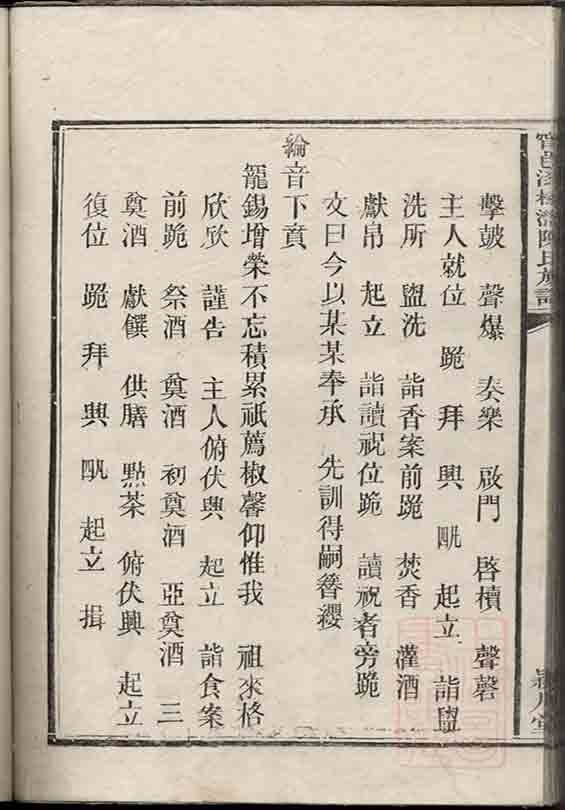 擊鼓 聲爆 奏樂 啟門 啓櫝 聲磬
主人就位 跪 拜 興 四 起立 詣盥
洗所 盥洗 詣香案前跪 焚香 灌酒
獻帛 起立 詣讀祝位跪 讀祝者旁跪
文曰今以某某奉承 先訓得嗣簪纓
綸音下賁
寵錫增榮不忘積累祇薦椒馨仰惟我 祖來格
欣欣 謹告 主人俯伏興 起立 詣食案
前跪 祭酒 奠酒 初奠酒 亞奠酒 三
奠酒 獻饌 供膳 點茶 俯伏興 起立
復位 跪 拜 興 四 起立 揖
陳氏族譜